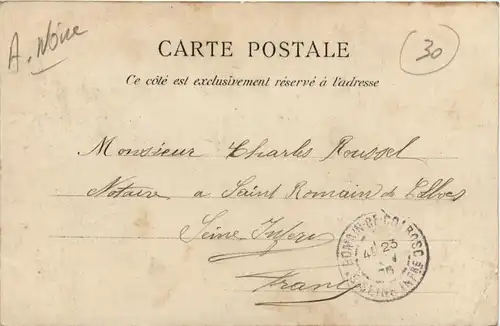 A. Nôire
30
CARTE POSTALE
Ce côté est exclusivement réservé à l'adresse
Monsieur Charles Roussel
Notaire a Saint Romain de Colbosc
Seine Infer
ROMAIN-DE-COLBOSC
23
SEINE INFRE
France